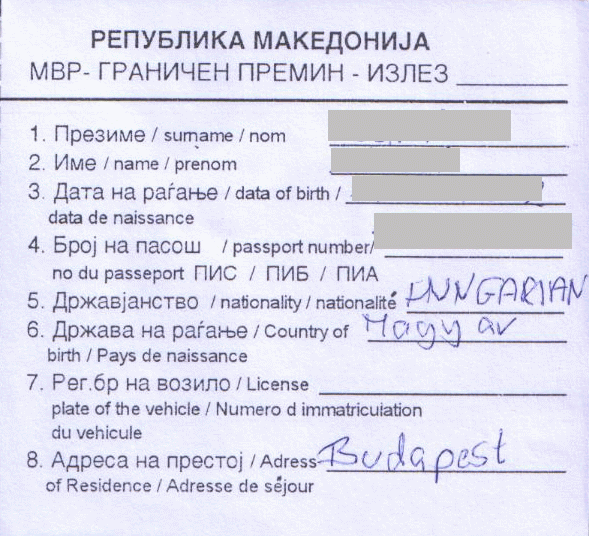 РЕПУБЛИКА МАКЕДОНИЈА
МВР- ГРАНИЧЕН ПРЕМИН - ИЗЛЕЗ
1. Презиме / surname / nom
2. Име / name / prenom
3. Дата на раѓање / data of birth /
data de naissance
4. Број на пасош / passport number/
no du passeport ПИС / ПИБ / ПИА
5. Државјанство / nationality / nationalité HUNGARIAN
6. Држава на раѓање / Country of Magyar
birth / Pays de naissance
7. Рег.бр на возило / License
plate of the vehicle / Numero d immatriculation
du vehicule
8. Адреса на престој / Adress Budapest
of Residence / Adresse de séjour